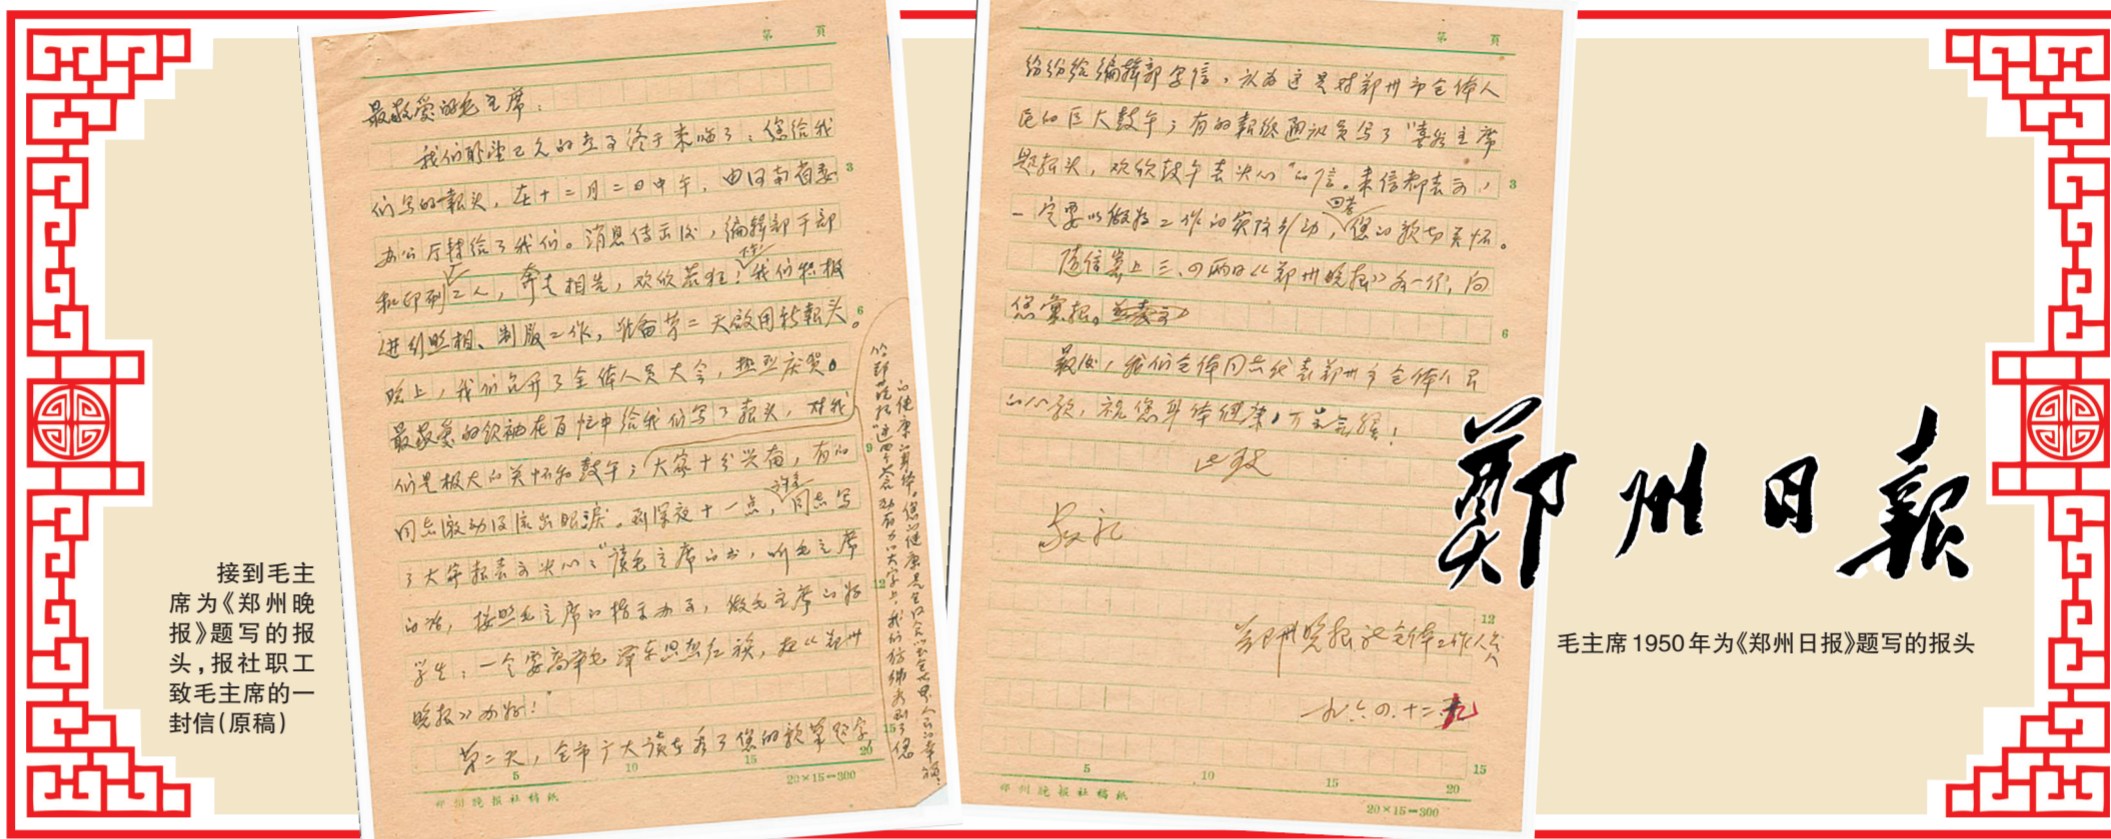 接到毛主
席为《郑州晚
报》题写的报
头，报社职工
致毛主席的一
封信（原稿）
第 頁
最敬爱的毛主席：
我们盼望已久的喜事终于来临了：您给我
们写的報头，在十二月二日中午，由河南省委
办公厅转给了我们。消息传出后，编辑部干部
和印刷工人，奔走相告，欢欣若狂！我们积极
进行照相、制版工作，准备第二天启用新報头。
晚上，我们召开了全体人员大会，热烈庆贺。
最敬爱的领袖在百忙中给我们写了報头，对我
们是极大的关怀和鼓午；大家十分兴奋，有的
同志激动得流出眼泪。到深夜十一点，许多同志写
了大字报表示决心：“读毛主席的书，听毛主席
的话，按照毛主席的指示办事，做毛主席的好
学生；一定要高举毛泽东思想红旗，把《郑州
晚报》办好！”
第二天，全市广大读者看了您的親筆题字，
3
6
9
12
15
5 10 15 20
20×15=300
郑州晚报社稿紙
第 頁
纷纷给编辑部写信，认为这是对郑州市全体人
民的巨大鼓午；有的報纸通讯员写了“喜看主席
题报头，欢欣鼓午表决心”的信。来信都表示，
一定要以做好工作的实际行动，回答您的親切关怀。
随信寄上三、四两日《郑州晚报》各一份，向
您彙报。
最后，我们全体同志代表郑州市全体人民
的心愿，祝您身体健康，万寿无疆！
此致
敬礼
郑州晚报社全体工作人员
一九六四.十二.九
3
6
12
15
5 10 15 20
20×15=300
郑州晚报社稿紙
鄭州日報
毛主席1950年为《郑州日报》题写的报头